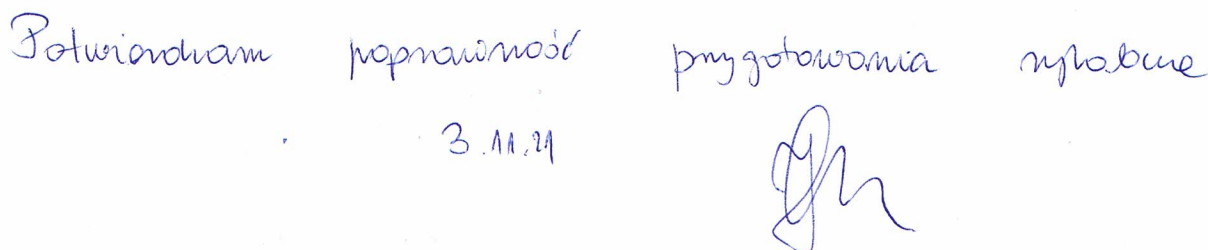 Potwierdzam poprawność przygotowania sylabusa
3.11.21